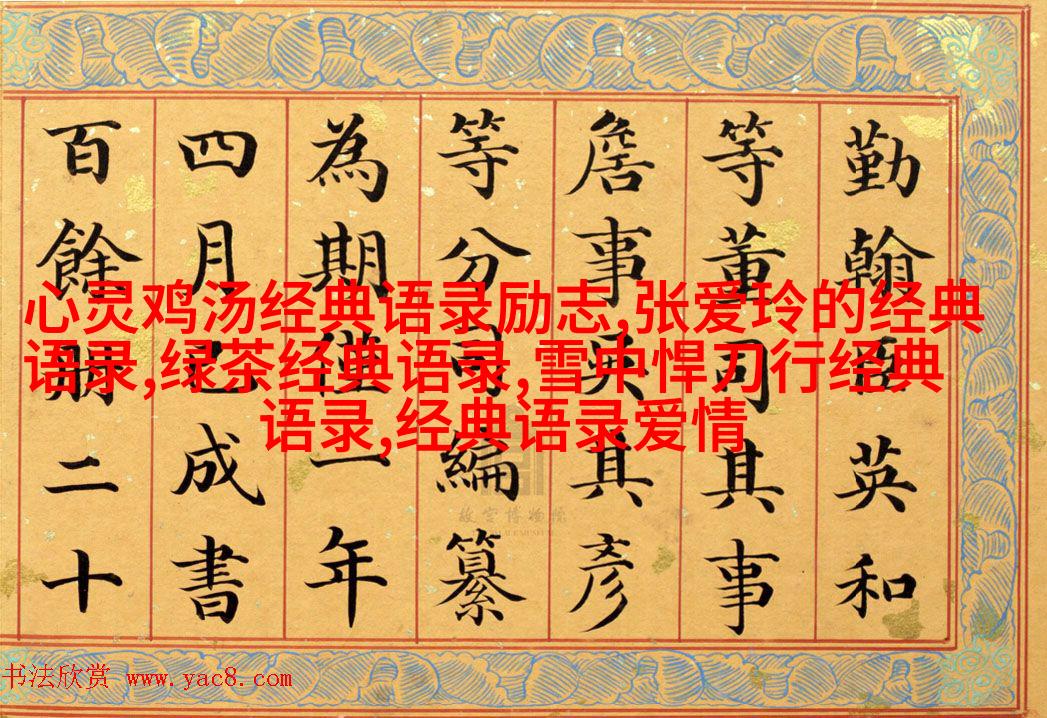 勤翰英和
等董司其事
詹事吳其彥
等分司編纂
為期僅一年
四月已成書
百餘冊二十
心灵鸡汤经典语录励志,张爱玲的经典
语录,绿茶经典语录,雪中悍刀行经典
语录,经典语录爱情
故宫博物院
书法欣赏 www.yac8.com